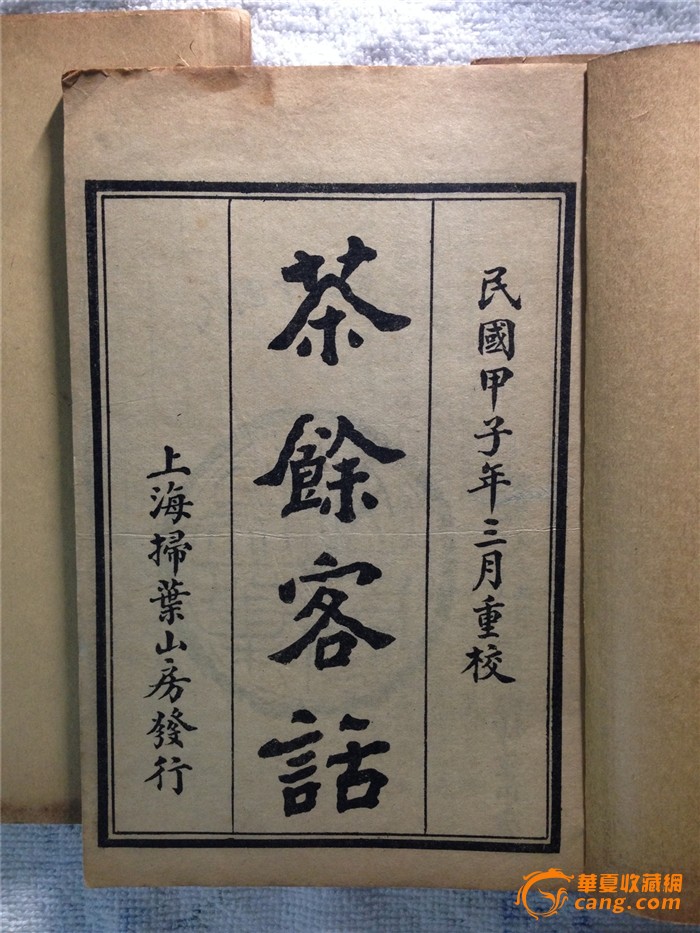 民國甲子年三月重校
茶餘客話
上海掃葉山房發行
華夏收藏網
cang.com